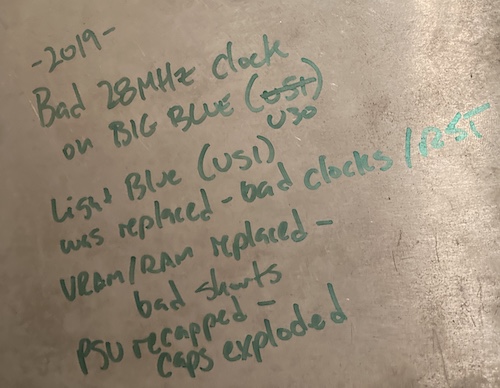 -2019-
Bad 28MHz Clock
on BIG BLUE (U51)
U30
Light Blue (U51)
was replaced - bad clocks / RST
VRAM/RAM replaced -
bad shorts
PSU recapped -
caps exploded